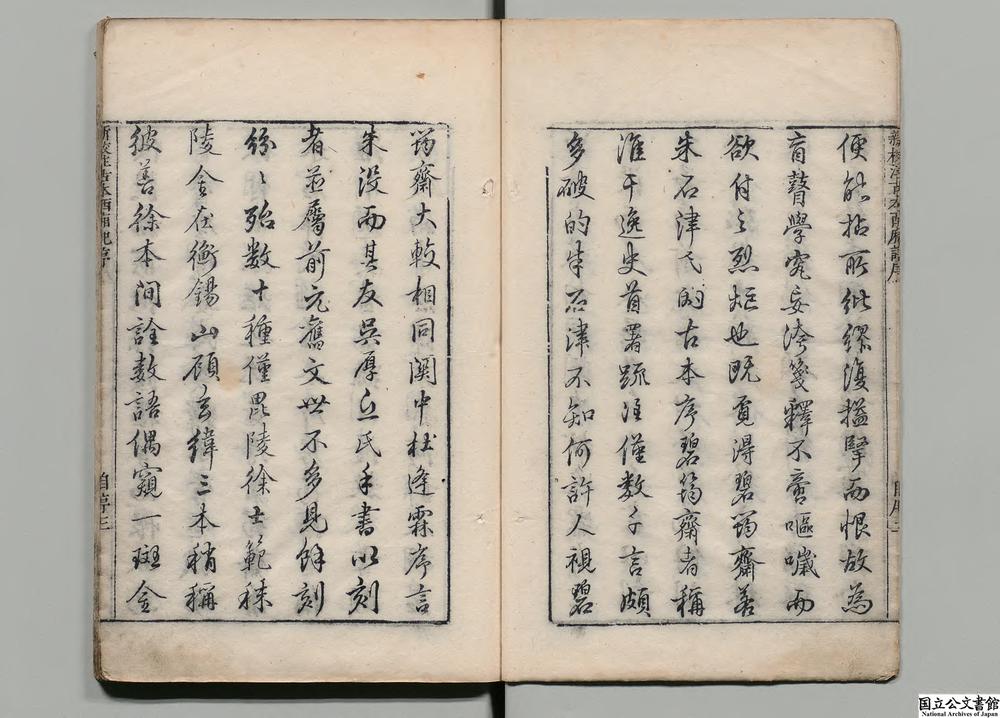 新校注古本西廂記自序
自序二
便能拈所紕繆復搤掔而恨故為
盲瞽學究妄誇箋釋不啻嘔噦而
欲付之烈炬也既覓得碧筠齋若
朱石津氏兩古本序碧筠齋者稱
淮干逸史首署疏注僅數千言頗
多破的朱石津不知何許人視碧
筠齋大較相同關中杜逢霖序言
朱沒而其友吳厚丘氏手書以刻
者並屬前元舊文世不多見餘刻
紛〻殆數十種僅毘陵徐士範秣
陵金在衡錫山顧玄緯三本稍稱
彼善徐本間詮數語偶窺一斑金
新校注古本西廂記序
自序三
国立公文書館
National Archives of Japan